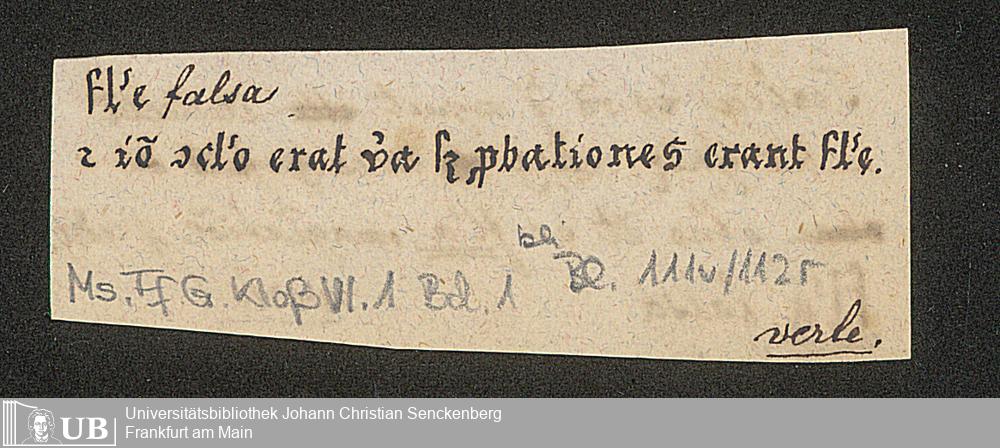 fl'e falsa
ꝛ iõ ↄcl'o erat v̉a ſꝫ ꝓbationes erant fl'e.
bei
Ms. Ff G. Kloß VI. 1 Bd. 1 Bl. 111v/112r
verte.
UB Universitätsbibliothek Johann Christian Senckenberg
Frankfurt am Main